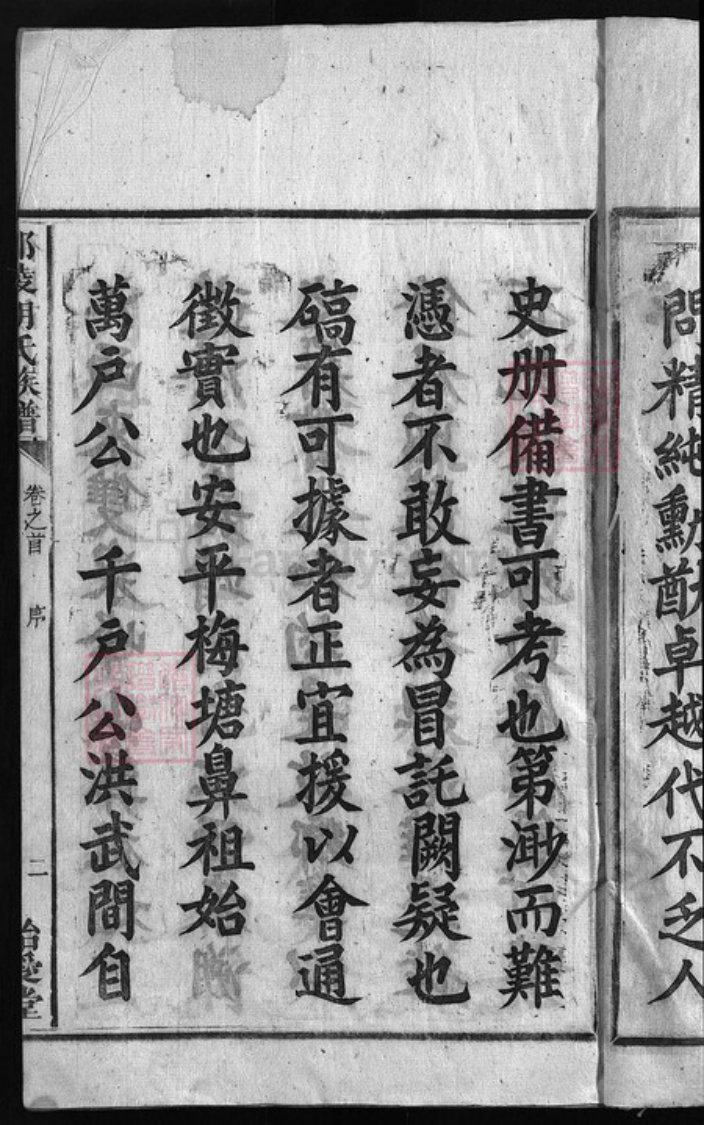 問精純勳猷卓越代不乏人
史册備書可考也第渺而難
憑者不敢妄為冒託闕疑也
碻有可據者正宜援以會通
徵實也安平梅塘鼻祖始
萬户公 千户公洪武間自
陵胡氏族譜
卷之首 序
二
堂